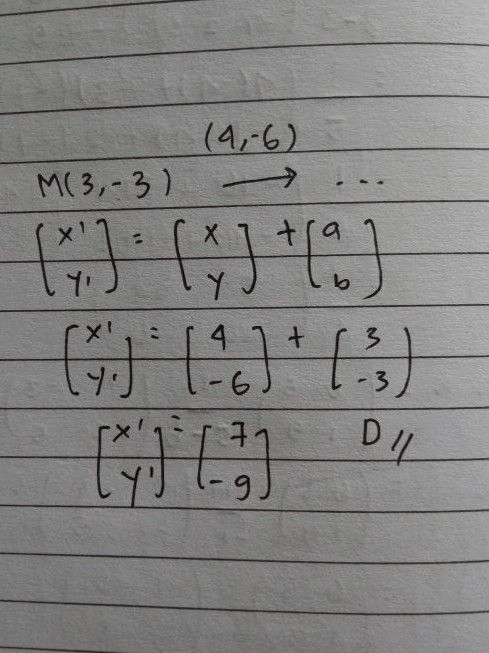 (4,-6)
M(3,-3) → ...
[x' y'] = [x y] + [a b]
[x' y'] = [4 -6] + [3 -3]
[x' y'] = [7 -9] D //